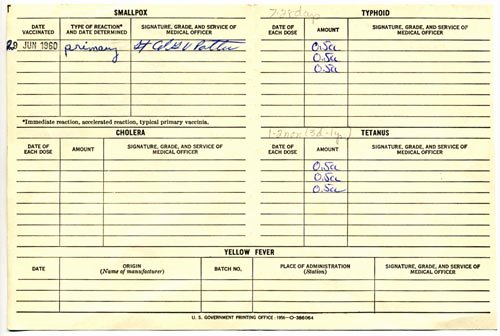 SMALLPOX
DATE VACCINATED TYPE OF REACTION* AND DATE DETERMINED SIGNATURE, GRADE, AND SERVICE OF MEDICAL OFFICER
29 JUN 1960 primary
*Immediate reaction, accelerated reaction, typical primary vaccinia.
7-28 days TYPHOID
DATE OF EACH DOSE AMOUNT SIGNATURE, GRADE, AND SERVICE OF MEDICAL OFFICER
0.5cc
0.5cc
0.5cc
CHOLERA
DATE OF EACH DOSE AMOUNT SIGNATURE, GRADE, AND SERVICE OF MEDICAL OFFICER
TETANUS
DATE OF EACH DOSE AMOUNT SIGNATURE, GRADE, AND SERVICE OF MEDICAL OFFICER
0.5cc
0.5cc
0.5cc
YELLOW FEVER
DATE ORIGIN (Name of manufacturer) BATCH NO. PLACE OF ADMINISTRATION (Station) SIGNATURE, GRADE, AND SERVICE OF MEDICAL OFFICER
U. S. GOVERNMENT PRINTING OFFICE : 1956—O-386064